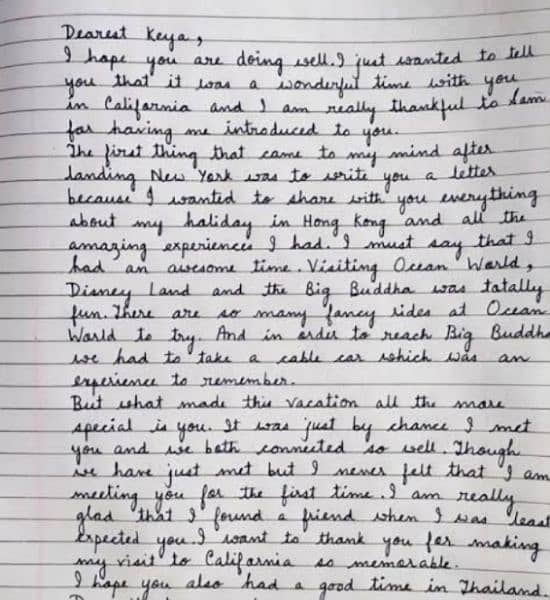 Dearest Keya,
I hope you are doing well. I just wanted to tell
you that it was a wonderful time with you
in California and I am really thankful to Sam
for having me introduced to you.
The first thing that came to my mind after
landing New York was to write you a letter
because I wanted to share with you everything
about my holiday in Hong Kong and all the
amazing experiences I had. I must say that I
had an awesome time. Visiting Ocean World,
Disney Land and the Big Buddha was totally
fun. There are so many fancy rides at Ocean
World to try. And in order to reach Big Buddha
we had to take a cable car which was an
experience to remember.
But what made this vacation all the more
special is you. It was just by chance I met
you and we both connected so well. Though
we have just met but I never felt that I am
meeting you for the first time. I am really
glad that I found a friend when I was least
expected you. I want to thank you for making
my visit to California so memorable.
I hope you also had a good time in Thailand.